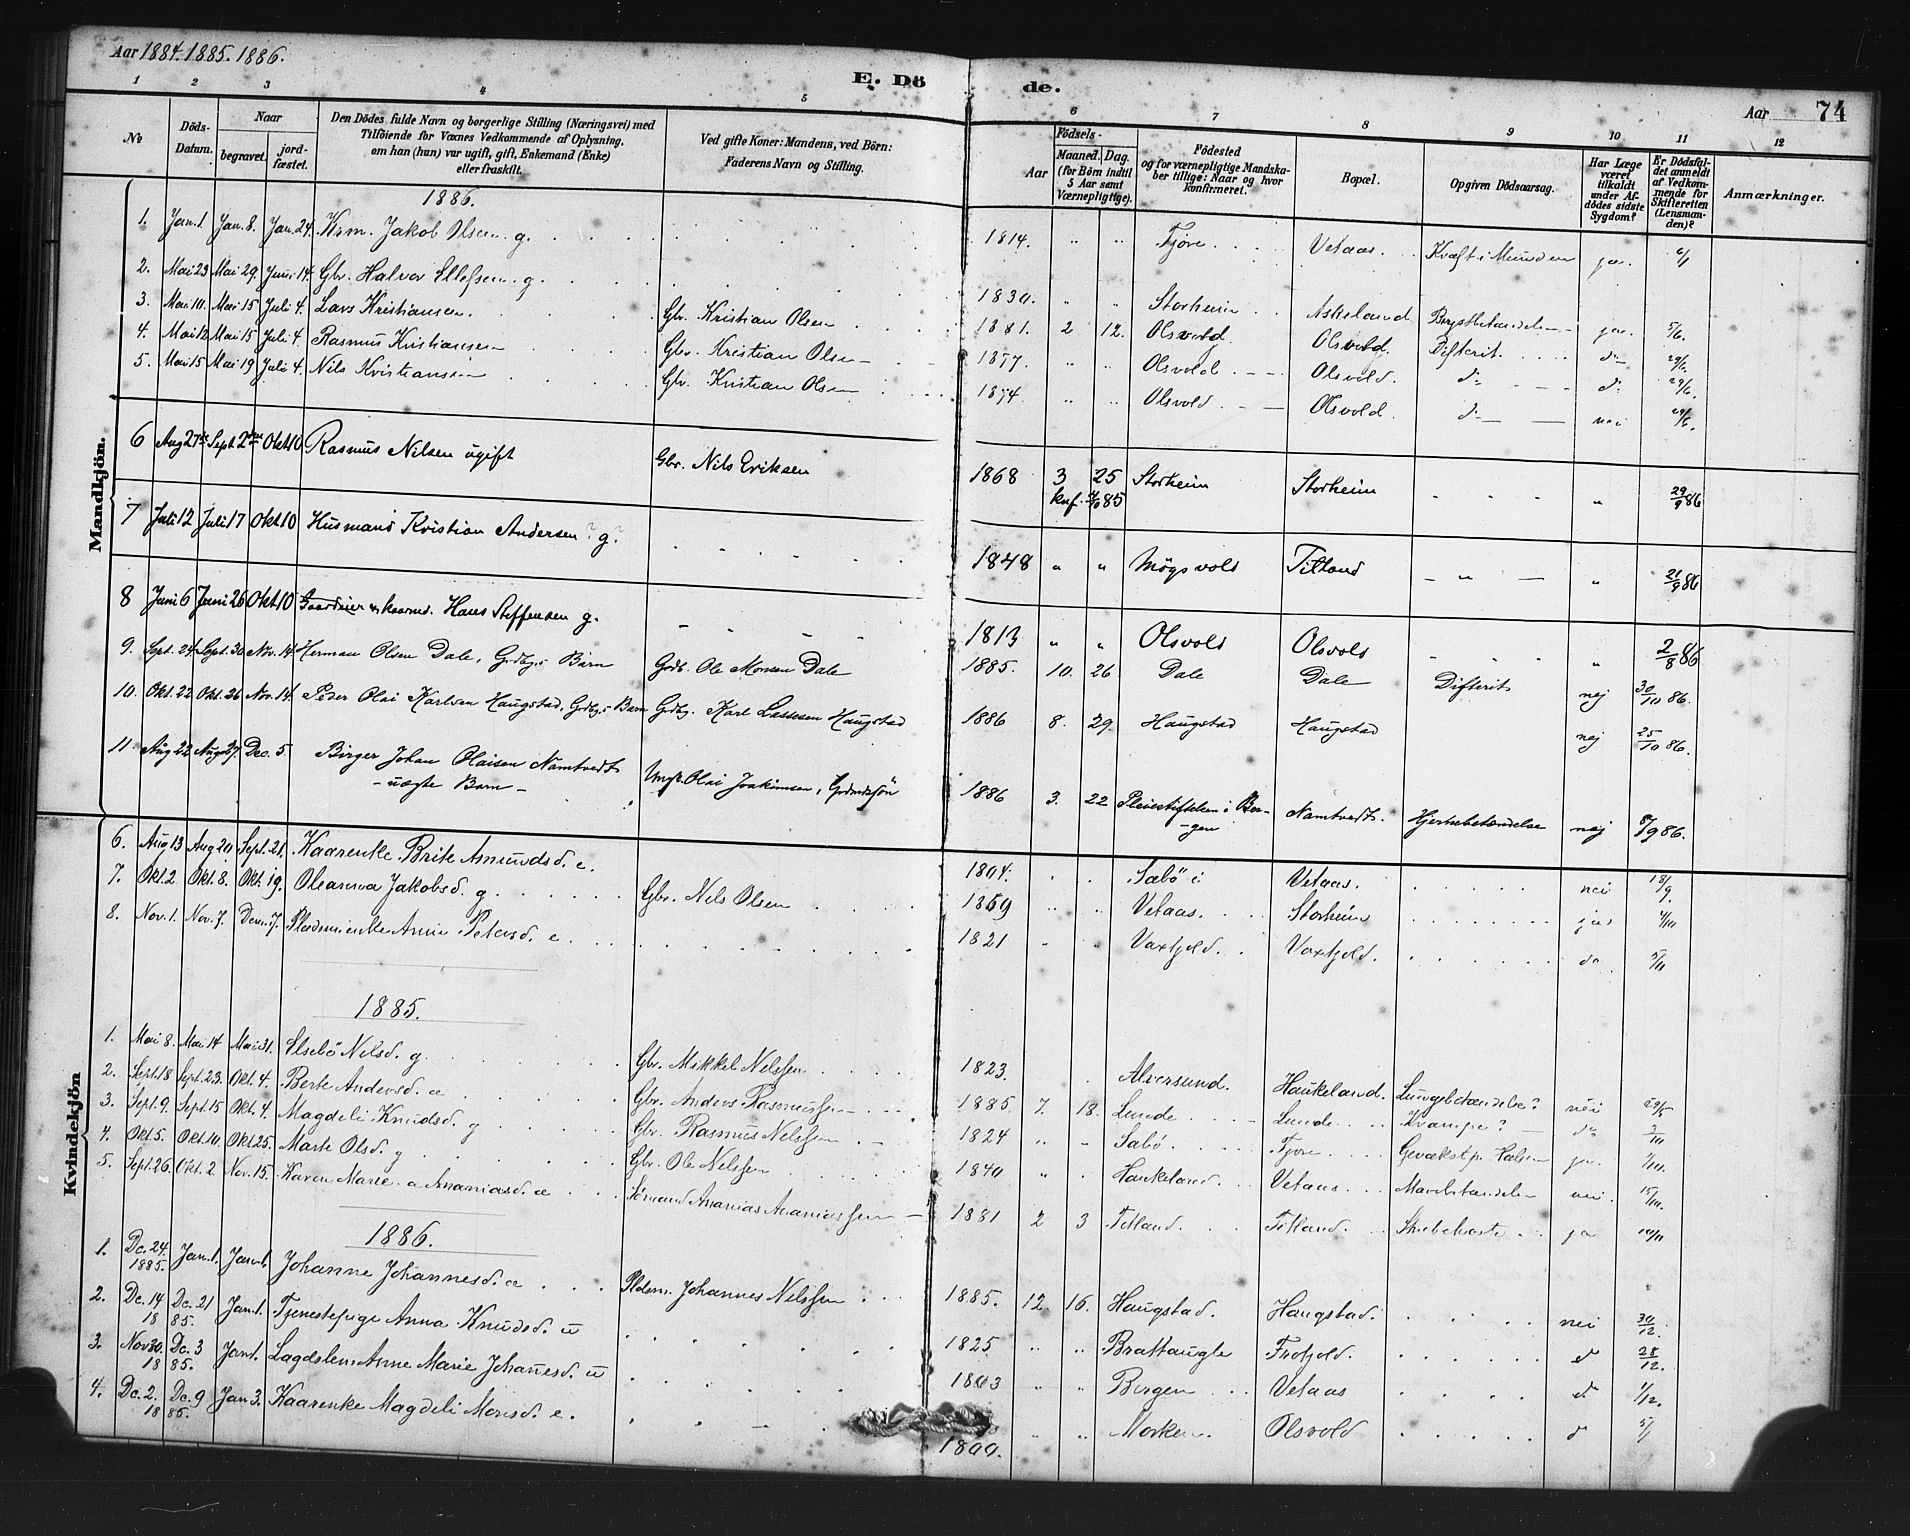 Aar 1884. 1885. 1886.
E. Dö de.
Aar 74
1 2 3 4 5 6 7 8 9 10 11 12
№
Döds-Datum.
Naar
begravet.
jord-fæstet.
Den Dödes fulde Navn og borgerlige Stilling (Næringsvei) med
Tilföiende for Voxnes Vedkommende af Oplysning,
om han (hun) var ugift, gift, Enkemand (Enke)
eller fraskilt.
Ved gifte Koner: Mandens, ved Börn:
Faderens Navn og Stilling.
Födsels-
Aar
Maaned. Dag.
(for Börn indtil
5 Aar samt
Værnepligtige).
Födested
og for værnepligtige Mandska-
ber tillige: Naar og hvor
konfirmeret.
Bopæl.
Opgiven Dödsaarsag.
Har Læge
været
tilkaldt
under Af-
dödes sidste
Sygdom?
Er Dödsfal-
det anmeldt
af Vedkom-
mende for
Skifteretten
(Lensman-
den)?
Anmærkninger.
Mandkjön.
1886.
1. Jan. 1 Jan. 8. Jan. 24. Krm. Jakob Olsen g. 1814. " " Tjore Vetaas. Kræft i Munden ja.
2. Mai 23 Mai 29 Juni 14 Gbr. Halvor Ellefsen g. 1830. " " Storheim Askeland Brystbetændelse ja. 5/6.
3. Mai 10. Mai 15 Juli 4. Lars Kristiansen. Gbr. Kristian Olsen 1881. 2 12. Olsvold Olsvold. Difterit. do 29/6.
4. Mai 12 Mai 15 Juli 4. Rasmus Kristiansen Gbr. Kristian Olsen 1877 " " Olsvold Olsvold. do do 29/6.
5. Mai 15 Mai 19 Juli 4. Nils Kristiansen Gbr. Kristian Olsen 1874 " " Olsvold Olsvold do nei 29/6.
6 Aug 27de Sept 2den Okt 10 Rasmus Nilsen ugift Gbr. Nils Eriksen 1868 3 25 Storheim Storheim " 29/9 86
knf. 4/10 85
7 Juli 12 Juli 17 Okt 10 Husmand Kristian Andersen? g? 1848 " " Mögsvold Titland " " 21/9 86
8 Juni 6 Juni 26 Okt 10 Hans Steffensen g. 1813 " " Olsvold Olsvold " 2/8 86
9. Sept. 24 Sept. 30 Nov. 14 Herman Olsen Dale, Grdbrgs Barn Grdb. Ole Monsen Dale 1885. 10. 26. Dale Dale Difterit nej 30/10 86.
10. Okt. 22 Okt. 26 Nov. 14. Peder Olai Karlsen Haugstad, Grdbgs Barn Grdbg. Karl Lassesen Haugstad 1886 8. 29. Haugstad Haugstad nej 25/10 86.
11. Aug 22 Aug 27. Dec. 5. Birger Johan Olaisen Namtvedt Ungk. Olai Joakimsen, Grdmdssön 1886 3. 22 Pleiestiftelsen i Ber- Namtvedt. Hjertebetændelse nej 8/9 86.
- uægte Barn -
-gen
Kvindekjön
6. Aug 13 Aug 20. Sept. 21. Kaarenke Brite Amundsd. e. 1804. Sabö i Vetaas. nei 18/9.
7. Okt. 2 Okt. 8. Okt. 19. Oleanna Jakobsd. g. Gbr. Nils Olsen 1859 " " Vetaas. Storheim ja 4/10
8. Nov. 1. Nov. 7. Dem. 7. Anne Petersd. e. 1821 " " Vaxtjold. Vaxtjold. do 5/11
1885.
1. Mai 8. Mai 14 Mai 31. Elsebö Nilsd. g. Gbr. Mikkel Nilssen 1823. Alversund. Haukeland. Lungebetændelse? nei 29/5
2. Sept. 18 Sept. 23. Okt. 4. Berte Andersd. æ Gbr. Anders Rasmussen 1885. 7. 18. Lunde Lunde Krampe? do 3/10
3. Sept. 9. Sept. 15 Okt. 4. Magdeli Knudsd. g Gbr. Rasmus Nilssen 1824 " " Sabö. Tjore ja.
4. Okt. 5. Okt. 10. Okt. 25. Marte Olsd. g Gbr. Ole Nilssen 1840 " " Haukeland. Vetaas Mavebetændelse nei 15/10.
5. Sept. 26. Okt. 2 Nov. 15. Karen Marie Ananiasd. æ Sömand Ananias Ananiassen 1881 2 3 Titland. Titland. Strubehoste ja 10/11
1886.
1. Dc. 24. 1885. Jan. 1. Jan. 1. Johanne Johannesd. æ Pldsm. Johannes Nilssen 1885. 12 16. Haugstad. Haugstad. nei 30/12.
2. Dc. 14 Dc. 21 1885. Jan. 1. Tjenestepige Anna Knudsd. u 1825. " " Brattaugle Frotjold. do 28/12.
3. Nov. 30. Dc. 3 1885. Jan 1. Lagdslem Anne Marie Johanesd. u 1803 " " Bergen Vetaas do 4/12.
4. Dc. 2. Dc. 9 1885. Jan 3. Kaarenke Magdeli Monsd. e. 1800. " " Morken. Olsvold do 5/1